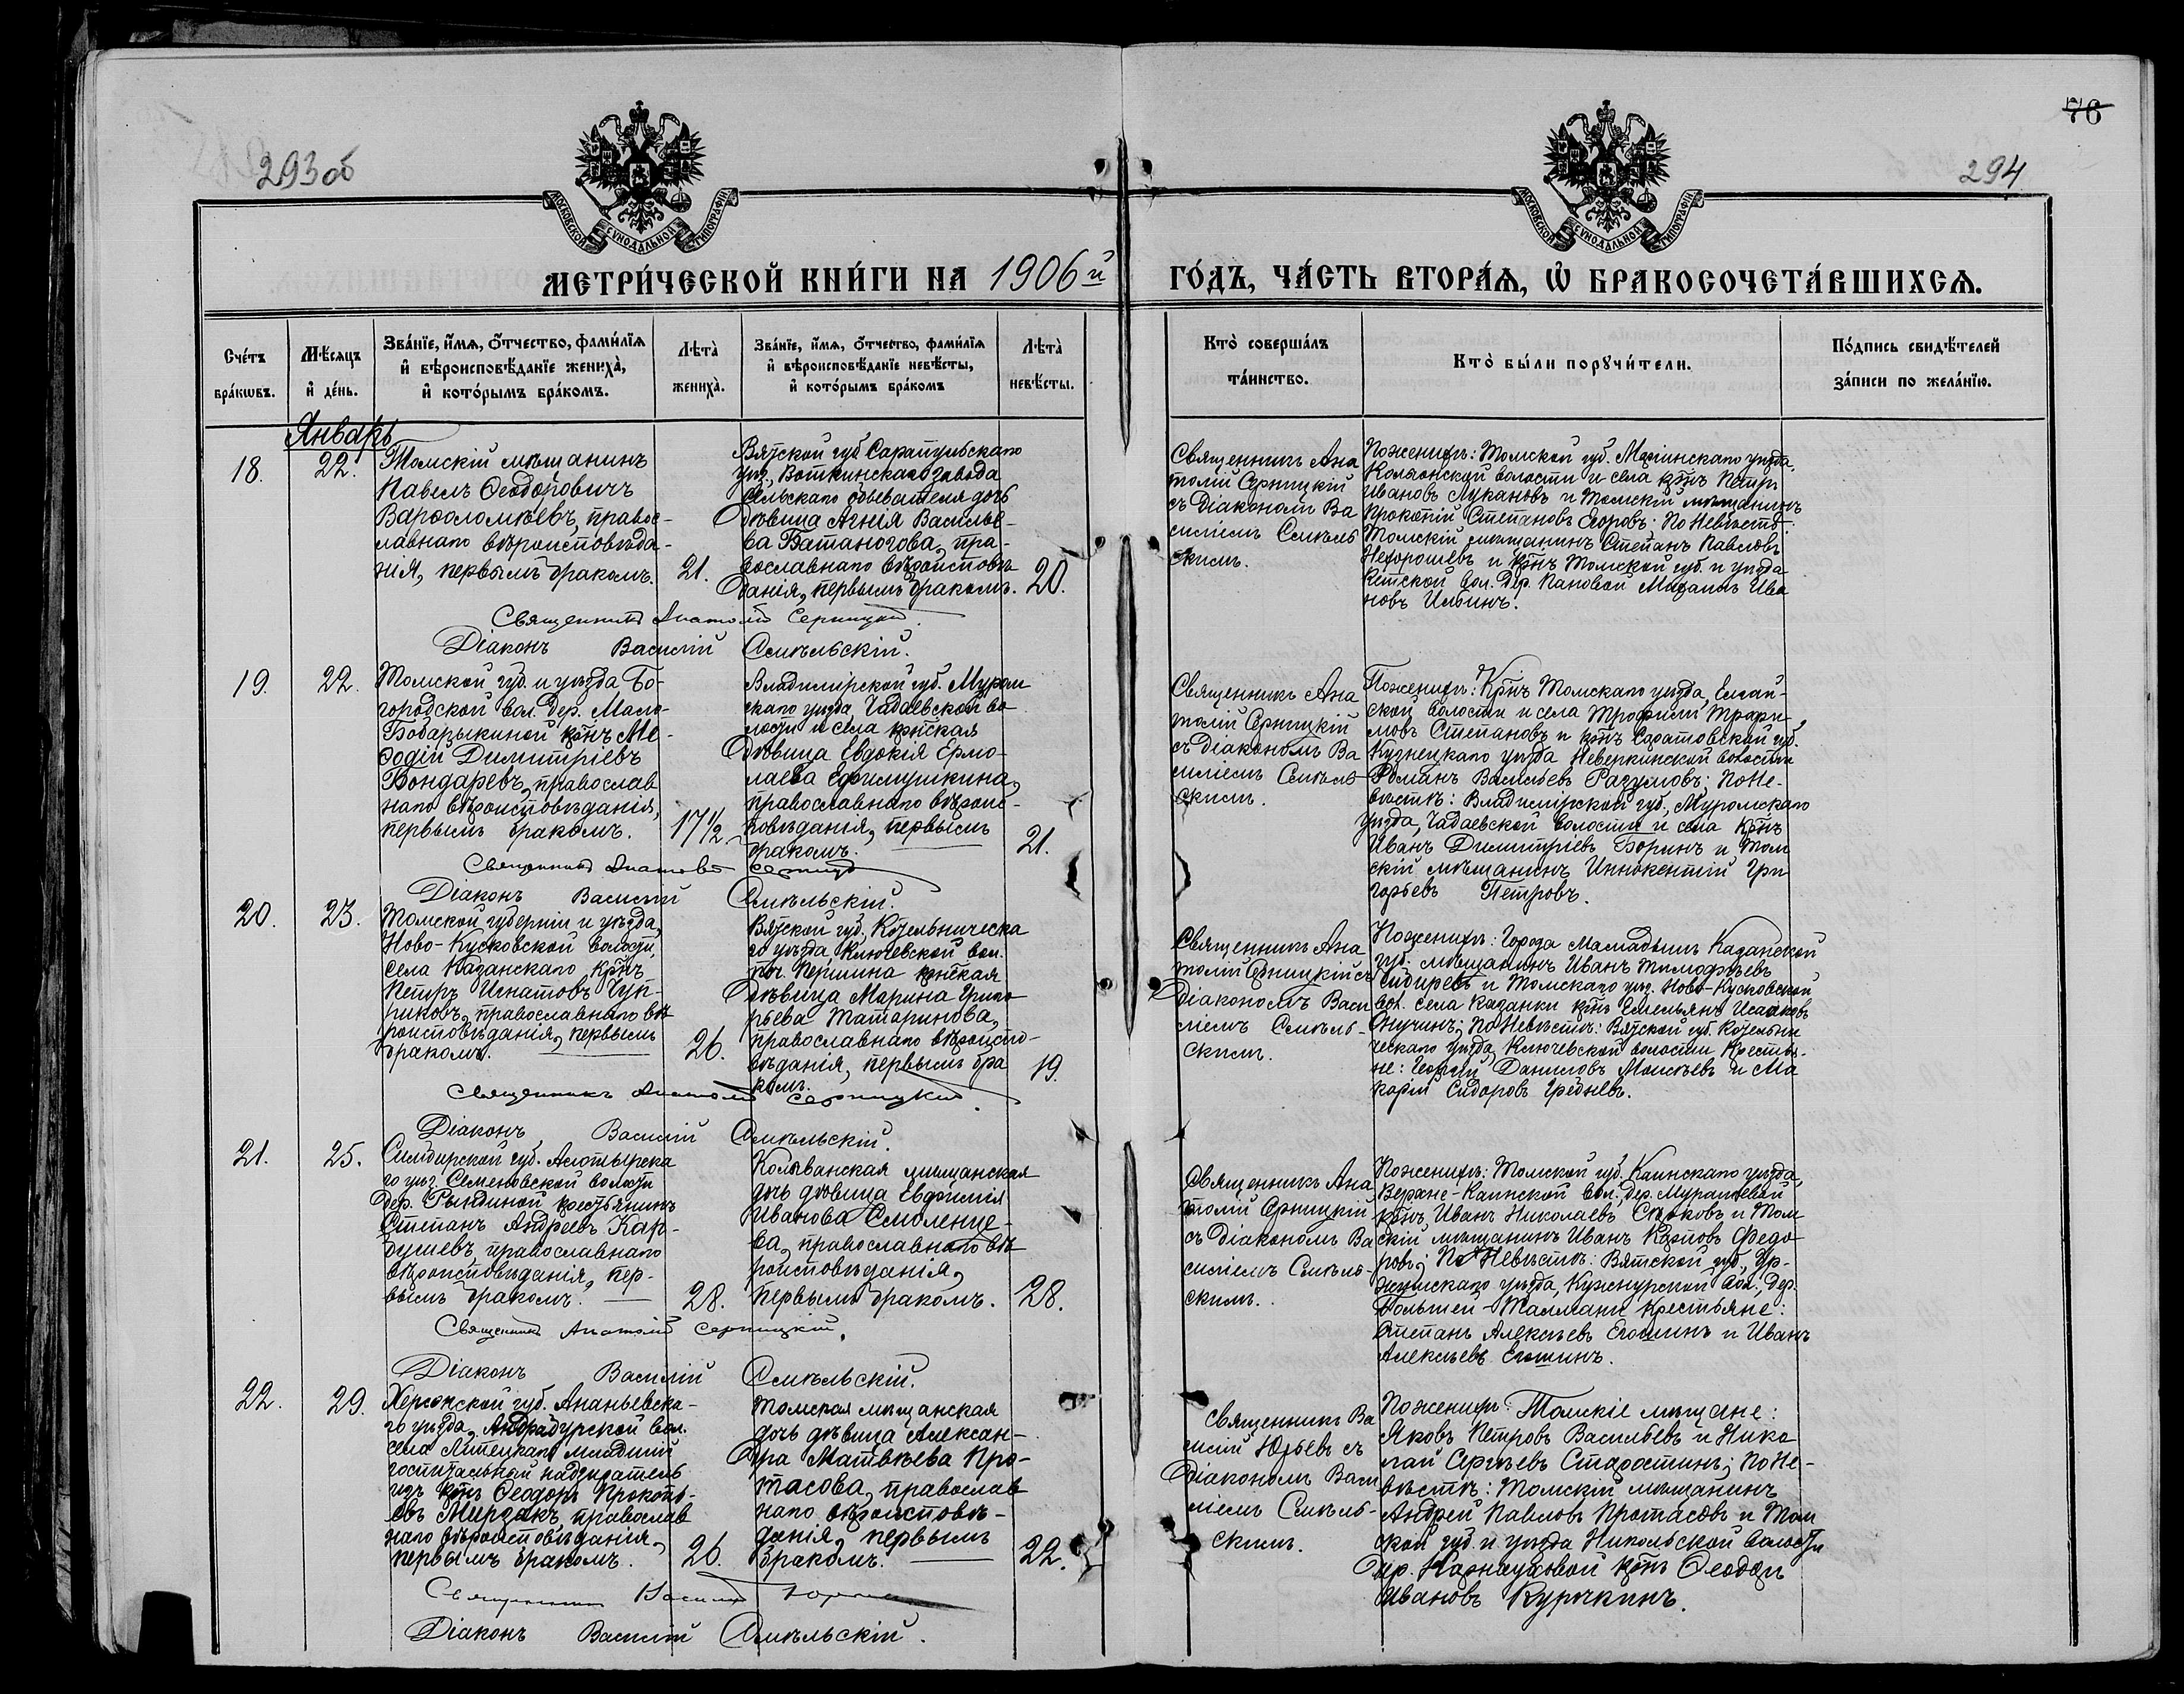 293об
76
294
МОСКОВСКОЙ СУНОДАЛЬНОЙ ТИПОГРАФІИ
МОСКОВСКОЙ СУНОДАЛЬНОЙ ТИПОГРАФІИ
МЕТРИ́ЧЕСКОЙ КНИ́ГИ НА 1906й ГО́ДЪ, ЧА́СТЬ ВТОРА́Я, Ѡ БРАКОСОЧЕТА́ВШИХСЯ.
Сче́тъ бра́кѡвъ.
Мѣ́сяцъ и де́нь.
Зва́нїе, и́мя, о́тчество, фами́лїя
и вѣроисповѣ́данїе жениха̀,
и кото́рымъ бра́комъ.
Лѣта̀ жениха̀.
Зва́нїе, и́мя, о́тчество, фами́лїя
и вѣроисповѣ́данїе невѣ́сты,
и кото́рымъ бра́комъ
Лѣта̀ невѣ́сты.
Кто̀ соверша́лъ
та́инство.
Кто̀ бы́ли порꙋчи́тели.
По́дпись свидѣ́телей
за́писи по жела́нїю.
Январь
18.
22.
Томскій мѣщанинъ
Павелъ Ѳеодоровичъ
Варѳоломѣевъ, правос-
лавнаго вѣроисповѣда-
нія, первымъ бракомъ.
21.
Вятской губ. Сарапульскаго
уѣз., Воткинскаго завода
сельскаго обывателя дочь
дѣвица Агнія Василье-
ва Ватаногова, пра-
вославнаго вѣроисповѣ-
данія, первымъ бракомъ.
20.
Священникъ Ана
толій Серницкій
съ діакономъ Ва
силіемъ Смѣль
скимъ.
По женихѣ: Томской губ. Маріинскаго уѣзда,
волости и села крнъ Петръ
Ивановъ Лукановъ и Томскій мѣщанинъ
Прокопій Степановъ Егоровъ; По невѣстѣ:
Томскій мѣщанинъ Степанъ Павловъ
Нехорошевъ и крнъ Томской губ. и уѣзда
вол. дер. Пановой Ива
новъ Ильинъ.
Священникъ Анатолій Серницкій.
Діаконъ Василій Смѣльскій.
19.
22.
Томской губ. и уѣзда Бо-
городской вол. дер. Мало-
Бобарыкиной крнъ Ме-
ѳодій Димитріевъ
Бондаревъ, православ
наго вѣроисповѣданія,
первымъ бракомъ.
17½.
Владимірской губ. Муром
скаго уѣзда Чадаевской во
лости и села крнская
дѣвица Евдокія Ермо-
лаева Ефимушкина,
православнаго вѣроис-
повѣданія, первымъ
бракомъ.
21.
Священникъ Ана
толій Серницкій
съ діакономъ Ва
силіемъ Смѣль
скимъ.
По женихѣ: Крнъ Томскаго уѣзда, Елгай-
ской волости и села Трофимъ Трофи-
мовъ Степановъ и крнъ Саратовской губ.
Кузнецкаго уѣзда Неверкинской волости
Романъ Васильевъ Разумовъ; По не-
вѣстѣ: Владимірской губ., Муромскаго
уѣзда, Чадаевской волости и села крнъ
Иванъ Димитріевъ Боринъ и Том
скій мѣщанинъ Иннокентій Гри
горьевъ Петровъ.
Священникъ Анатолій Серницкій
Діаконъ Василій Смѣльскій.
20.
23.
Томской губерніи и уѣзда,
Ново-Кусковской волости,
села Казанскаго крнъ
Петръ Игнатовъ Чуп-
риковъ, православнаго вѣ
роисповѣданія, первымъ
бракомъ.
26.
Вятской губ., Котельническа
го уѣзда, Ключевской вол.
поч. Першина крнская
дѣвица Марина Григо
рьева Татаринова,
православнаго вѣроиспо-
вѣданія, первымъ бра
комъ.
19.
Священникъ Ана
толій Серницкій съ
діакономъ Васи
ліемъ Смѣль-
скимъ.
По женихѣ: Города Мамадышъ Казанской
губ. мѣщанинъ Иванъ Тимофѣевъ
Сибиревъ и Томскаго уѣз. Ново-Кусковской
вол. села Казанки крнъ Емельянъ Исааковъ
Онучинъ; По невѣстѣ: Вятской губ. Котельни
ческаго уѣзда, Ключевской волости крестья-
не: Георгій Даниловъ Моисѣевъ и Ма
карій Сидоровъ Гребневъ.
Священникъ Анатолій Серницкій.
Діаконъ Василій Смѣльскій.
21.
25.
Симбирской губ. Алатырска
го уѣз. Семеновской волости
дер. Рындиной крестьянинъ
Степанъ Андреевъ Кар-
душевъ, православнаго
вѣроисповѣданія, пер-
вымъ бракомъ.
28.
Колыванская мѣщанская
дочь дѣвица Евфимія
Иванова Смоленце-
ва, православнаго вѣ
роисповѣданія,
первымъ бракомъ.
28.
Священникъ Ана
толій Серницкій
съ діакономъ Ва
силіемъ Смѣль-
скимъ.
По женихѣ: Томской губ. Каинскаго уѣзда,
Верхне-Каинской вол., дер. Мурашевой
крнъ Иванъ Николаевъ Сѣрковъ и Том
скій мѣщанинъ Иванъ Карповъ Федо
ровъ; По невѣстѣ: Вятской губ., Ур-
жумскаго уѣзда, Кужнурской вол., дер.
Большей-Талмани крестьяне:
Степанъ Алексѣевъ Егошинъ и Иванъ
Алексѣевъ Егошинъ.
Священникъ Анатолій Серницкій.
Діаконъ Василій Смѣльскій.
22.
29.
Херсонской губ. Ананьевска-
го уѣзда, вол.
села младшій
госпитальный надзиратель
изъ крнъ Ѳеодоръ Прокопь-
евъ Мирзакъ, православ
наго вѣроисповѣданія,
первымъ бракомъ.
26.
Томская мѣщанская
дочь дѣвица Алексан-
дра Матвѣева Про-
тасова, православ
наго вѣроисповѣ-
данія, первымъ
бракомъ.
22.
Священникъ Ва
силій Юрьевъ съ
діакономъ Васи
ліемъ Смѣль-
скимъ.
По женихѣ: Томскіе мѣщане:
Яковъ Петровъ Васильевъ и Нико
лай Сергѣевъ Старостинъ; По не-
вѣстѣ: Томскій мѣщанинъ
Андрей Павловъ Протасовъ и Том
ской губ. и уѣзда Никольской волости
дер. Карнауховой крнъ Ѳеодоръ
Ивановъ Курочкинъ.
Священникъ Василій Юрьевъ
Діаконъ Василій Смѣльскій.